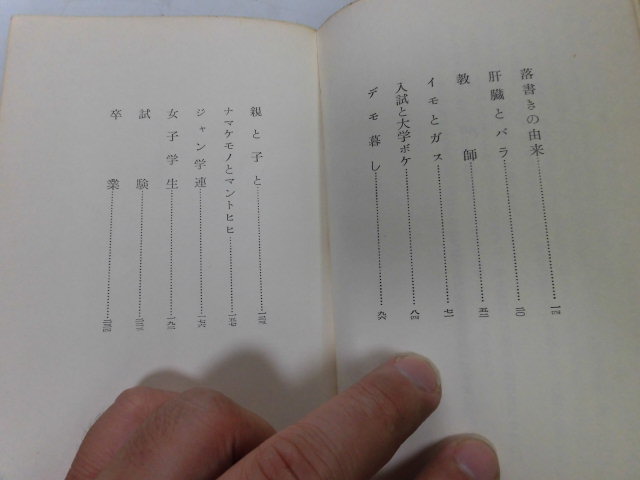 落書きの由来……一二
肝臓とバラ……二〇
教師……五二
イモとガス……七一
入試と大学ボケ……八四
デモ暮し……九六
親と子と
ナマケモノとマントヒヒ……一五七
ジャン学連……一七六
女子学生……一九二
試験
卒業